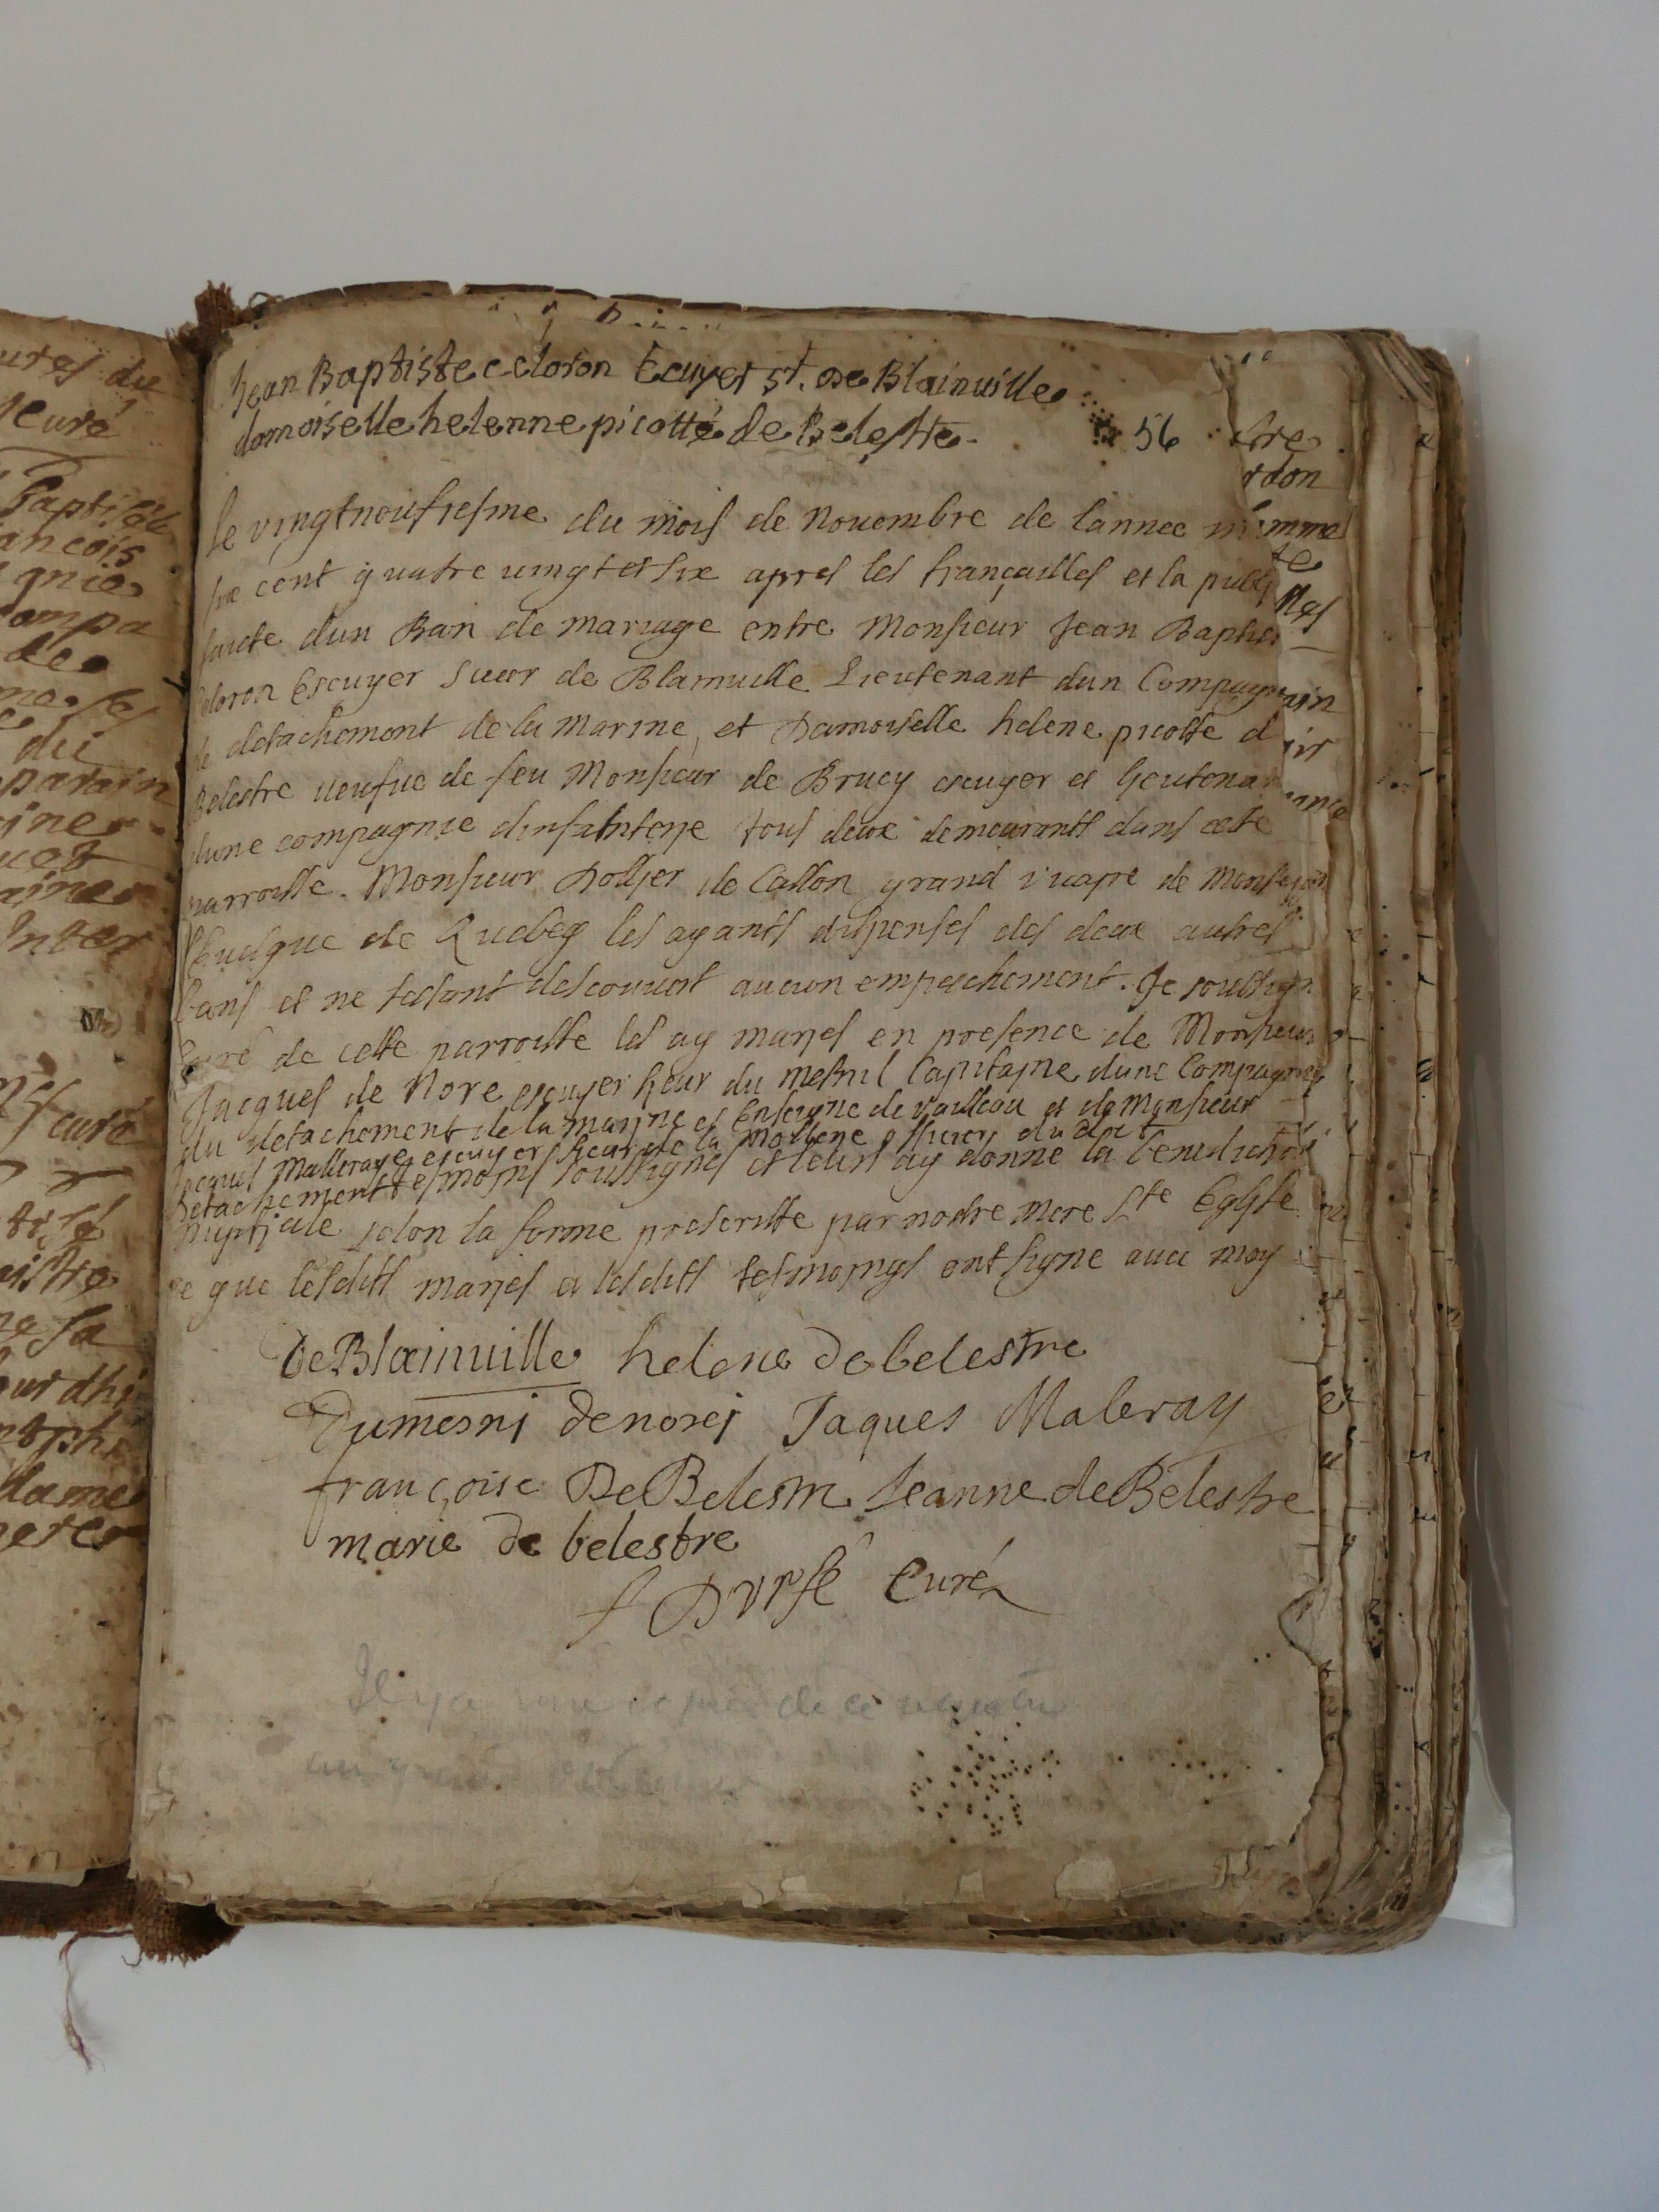 Jean Baptiste celoron Ecuyer sr. De Blainuille
damoiselle helenne picotté de Belestre.
56
le vingtneufiesme du mois de Nouembre de lannee
six cent quatre uingt et six apres les françailles et la publi
faicte dun Ban de mariage entre Monsieur Jean Baptis
Celoron Escuyer sieur de Blainuille Lieutenant dun Compagn
de detachement de la Marine, et Damoiselle helene picotte d
Belestre ueufue de feu Monsieur de Brucy escuyer et lieutenan
dune compagnie dinfanterie tous deux demeurants dans cete
parroisse. Monsieur Dollier de Casson grand vicaire de Monseig
lEuesque de Quebeq les ayants dispenses des deux autres
bans et ne sestant descouuert aucun empeschement. Je soussign
Curé de cette parroisse les ay mariés en presence de Monsieur
Jacques de Nore escuyer sieur du Mesnil Capitaine dune Compagnie
du detachement de la marine et Enseigne de vaisseau et de Monsieur
Jacques Malleraye escuyer sieur de la Mollerie officier dudit
detachement tesmoins soussignes et leurs ay donne la benediction
nuptiale selon la forme prescritte par nostre mere Ste Eglise
ce que lesdits mariés et lesdits tesmoings ont signe auec moy
De Blainuille helene de belestre
Dumesni denorei Jaques Maleray
françoise De Belestre Jeanne de Belestre
marie de belestre
f Dvrfé Curé
Il y a une copie de ce
ures du
curé
Baptiste
ancois
gnie
ompa
de
du
parain
Inter
curé
istre
sa
our dhi
dame
stre
rdon
mme
te
lles
ain